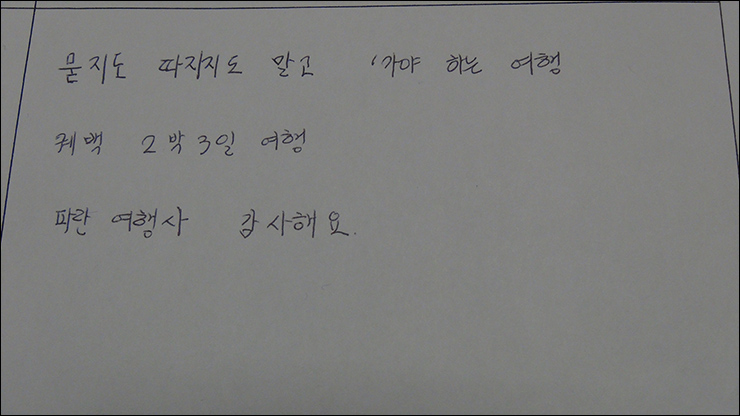 묻지도 따지지도 말고 '가야 하는 여행
퀘백 2박3일 여행
파란 여행사 감사해요.